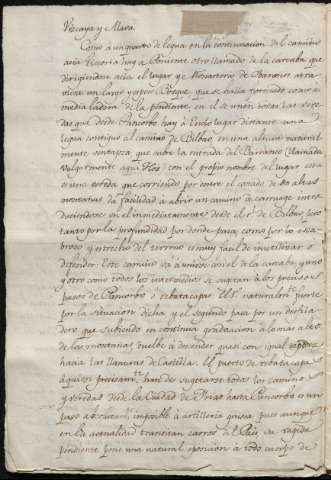 Vizcaya y Alava.
Como à un quarto de legua en la continuacion del camino
acia Vitoria hay à Poniente otro llamado de la carcaba que
dirigiendose acia el lugar y Monasterio de Obarenes atra-
viesa un largo y espeso Bosque que se halla termino como a
media ladera de la pendiente, en el se unen todas las vere-
das que desde Pancorbo hay à Encio lugar distante una
legua contiguo al camino de Bilbao en una altura natural-
mente ventajosa que cubre la entrada del Barranco llamada
Vulgarmente aqui Hoz; con el propio nombre al lugar esta
es una estrecha que corriendo por entre el costado de dos altas
montañas da facilidad à abrir un camino de carruage intro-
duciendose en el inmediatamente desde el r.l de Bilbao, pero
tanto por la profundidad por donde pasa, como por lo esca-
broso y estrecho del terreno es muy facil de inutilizar o
defender. Este camino và à unirse con el de la carcaba, y uno
y otro como todos los intermedios se sugetan à los precisos
pasos de Pancorvo o rebatacapas. El 1.º naturalm.te fuerte
por la situacion dicha y el segundo pasa por un desfila-
dero que subiendo en continua graduacion à lo mas alto
de las montañas, vuelve à descender quasi con igual
hacia las llanuras de Castilla. El puerto de rebatacapas
à quien precisam.te han de sugetarse todos los caminos
y veredas desde la Ciudad de Frias hasta Pancorbo es un
paso absolutam.te imposible à artilleria gruesa pues aunque
en la actualidad transitan carros del Pais su rapida
pendiente pone una natural oposicion a todo cuerpo de